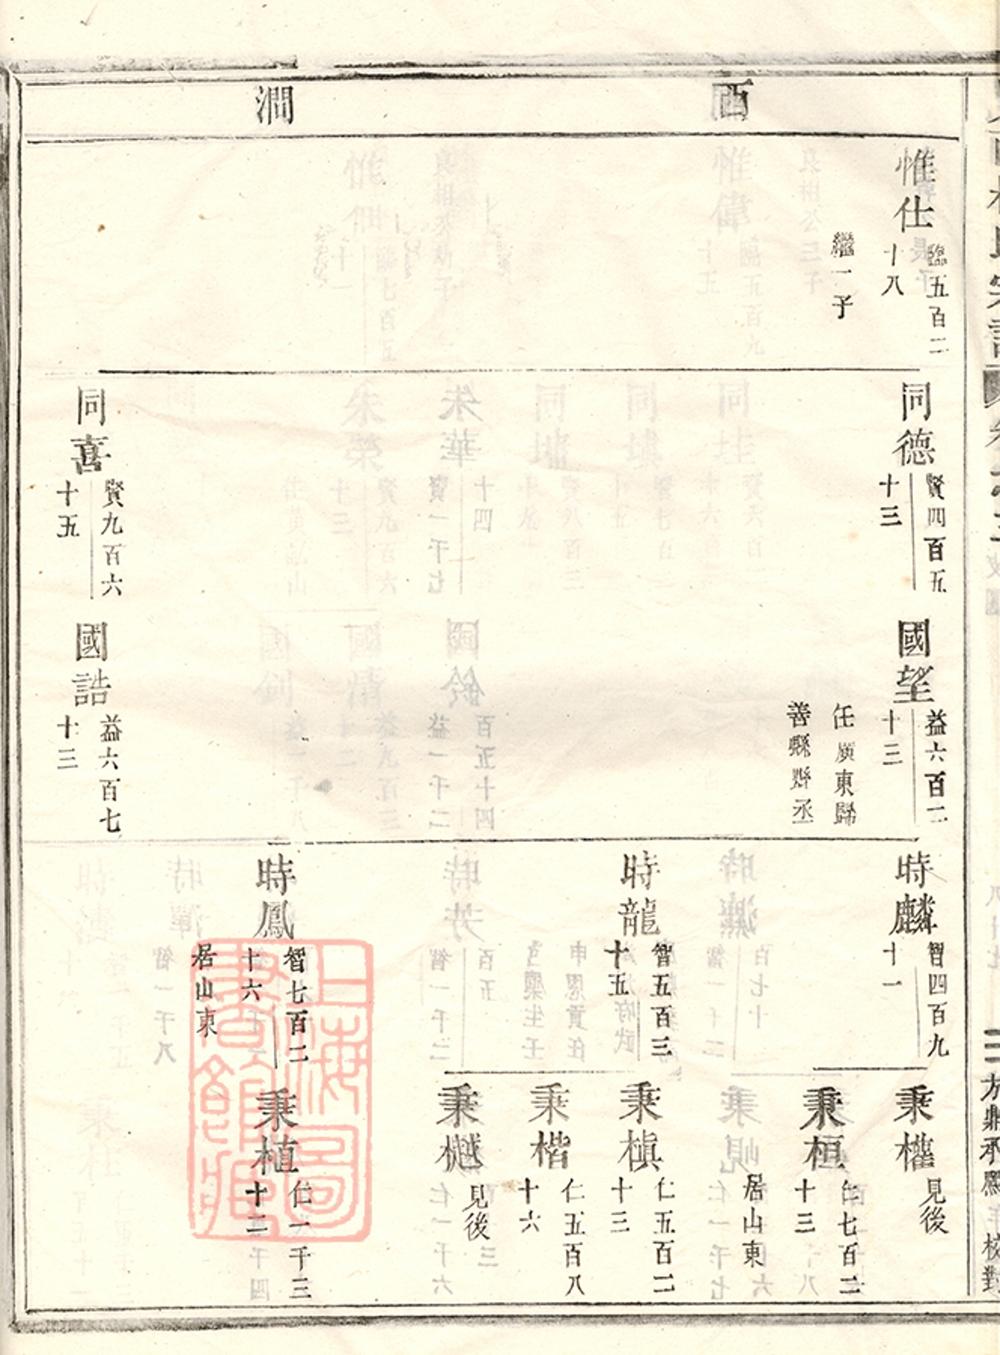 西澗
惟仕
臨五百二
十八
繼一子
同德
賢四百五
十三
同喜
賢九百六
十五
國望
益六百二
十三
任廣東歸
善縣縣丞
國誥
益六百七
十三
時麟
智四百九
十一
時龍
智五百三
十五
時鳳
智七百二
十六
居山東
秉權
見後
秉桓
仁七百二
十三
居山東
秉槙
仁五百二
十三
秉楷
仁五百八
十六
秉樾
見後
秉植
仁一千三
十二
上海圖書館藏